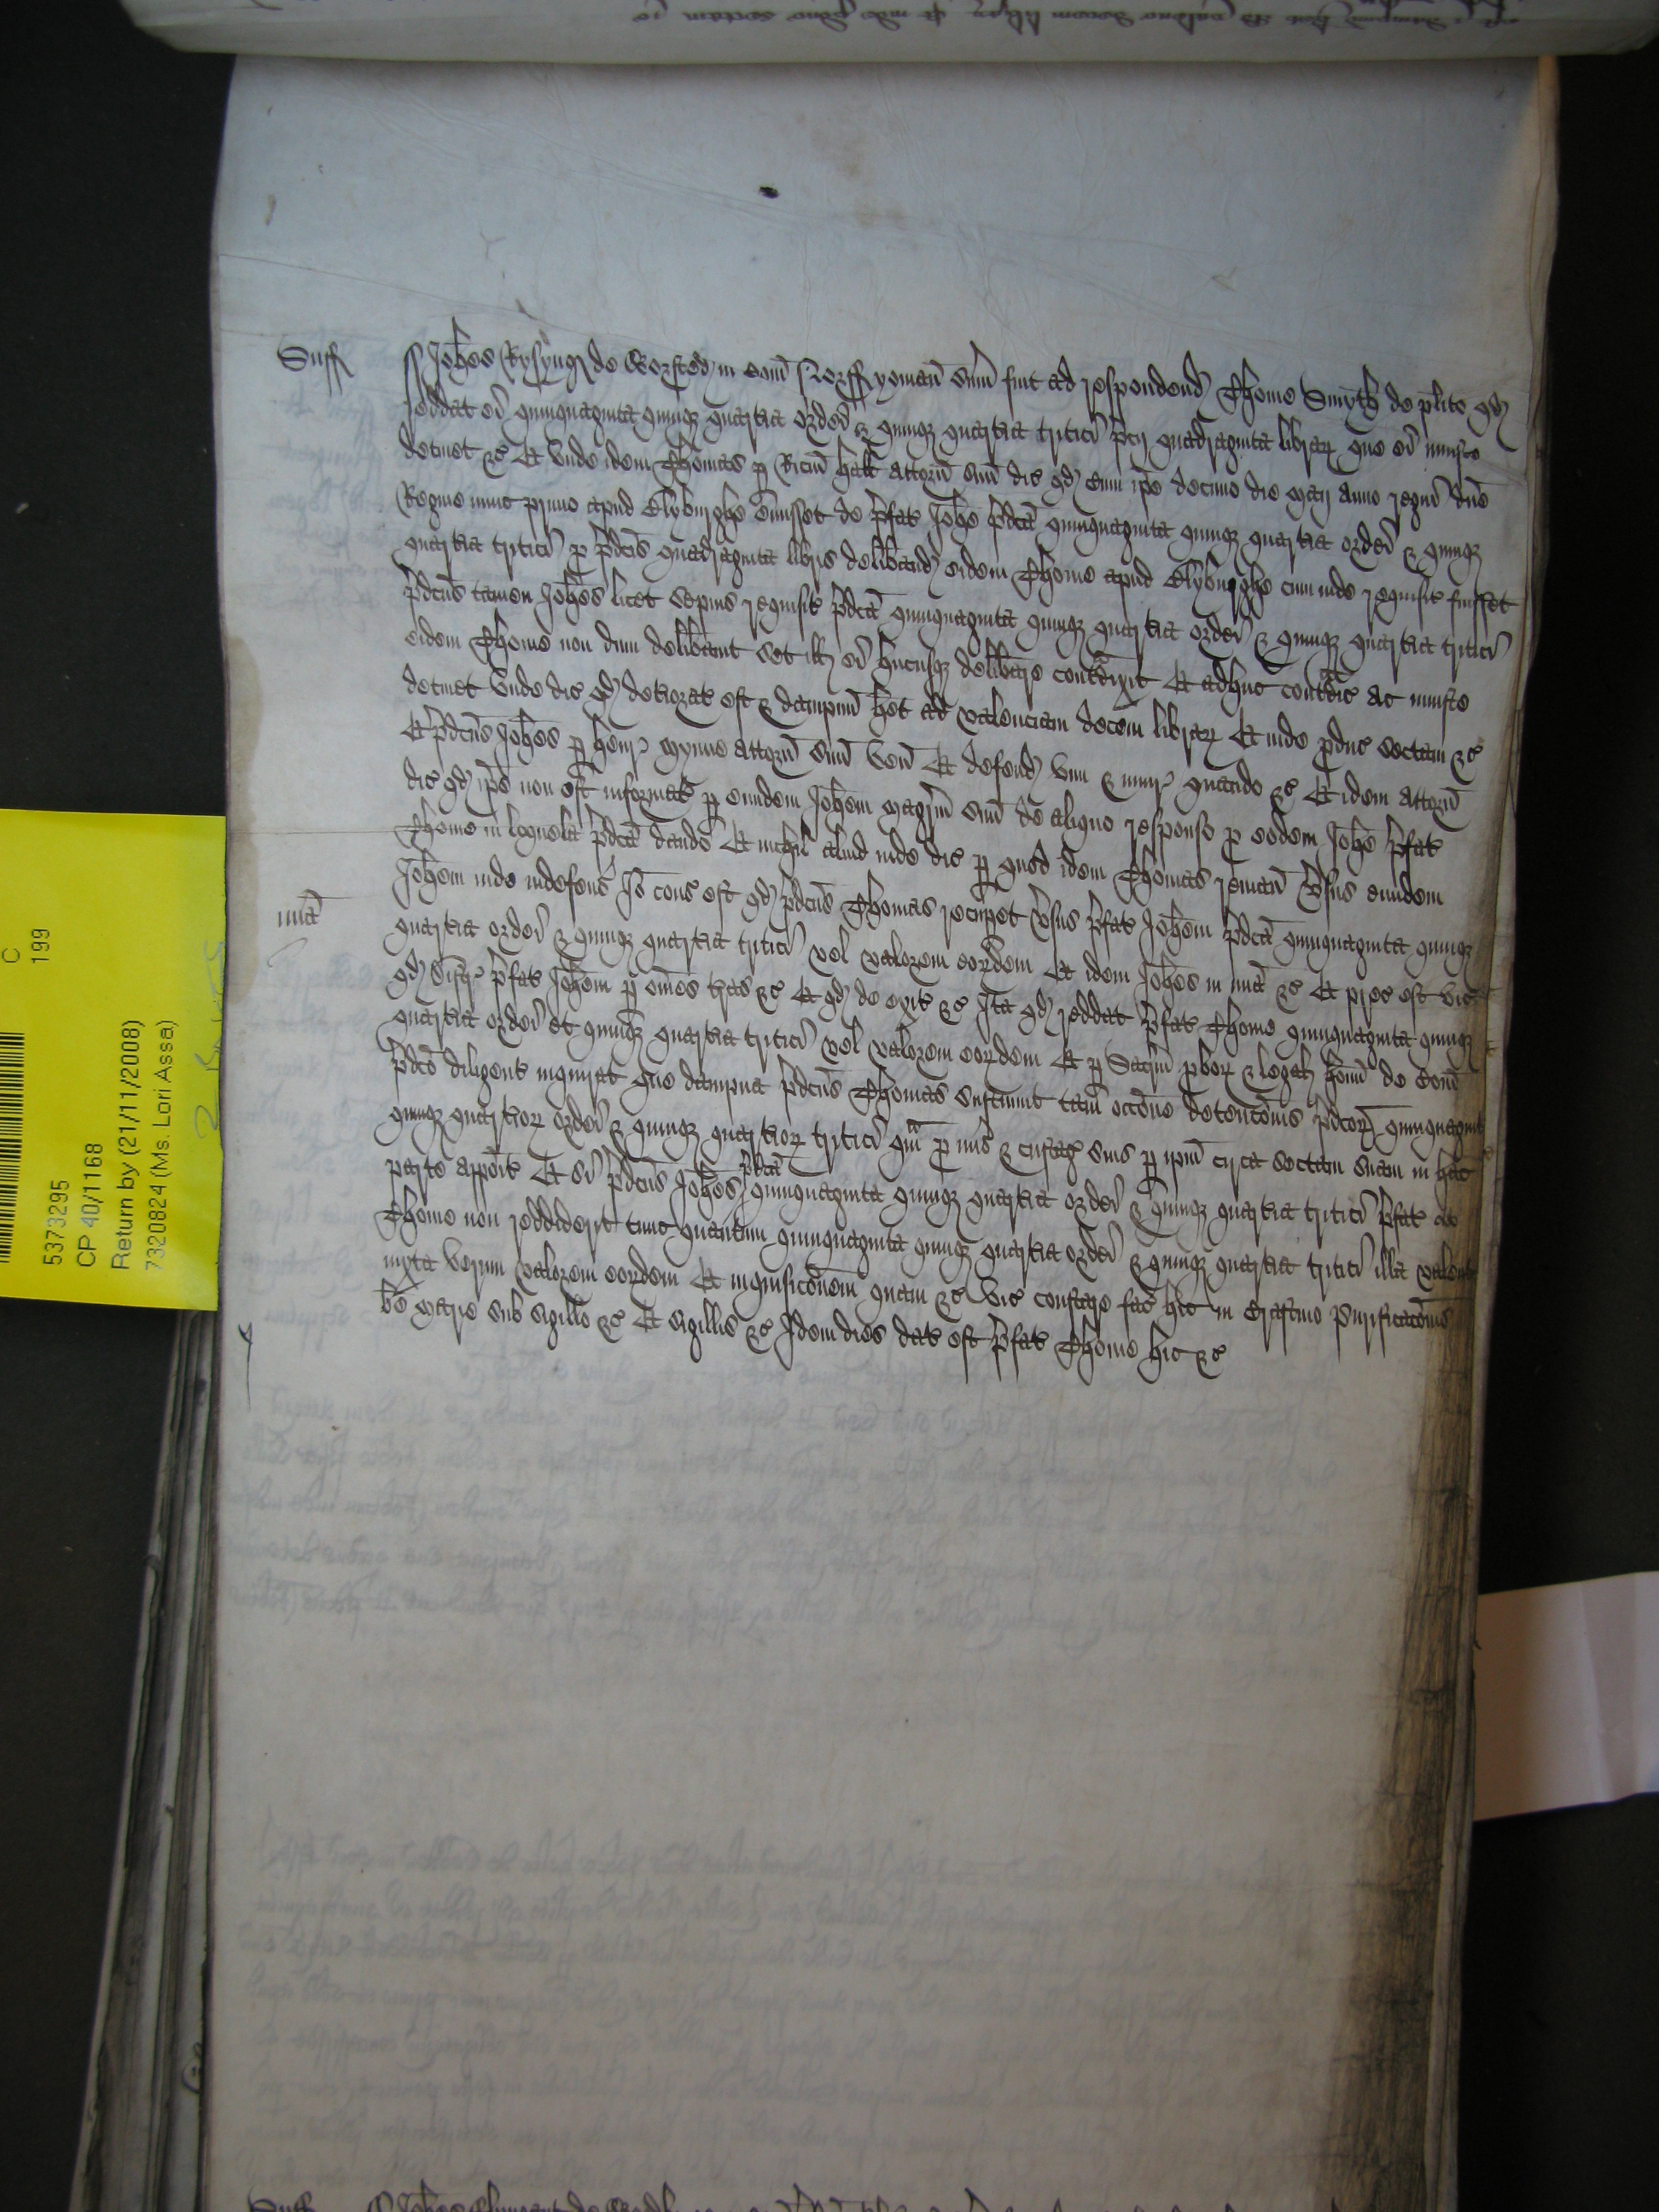 Suff Joh̄es Rysyng de Worsted in com̄ Norff yoman Sum̄ fuit ad respondend̄ Thome Smyth de pl̄ito qd̄
reddat ei quinquaginta quinqz quarˀia ordei & quinqz quarˀia tritici p̄cij quadraginta librarˀ que ei iniuste
detinet &c Et unde idem Thomas p Ric̄m hatt attorn̄ suū dic̄ qd̄ cum ip̄e decimo die Maij anno regni dn̄e
Regine nunc primo apud emisset de p̄fat̄ Joh̄e p̄dc̄a quinquaginta quinqz quarˀia ordei & quinqz
quarˀia tritici p p̄dc̄is quadraginta libris delib̄and̄ eidem Thome apud cum inde requisit̄ fuisset
p̄dc̄us tamen Joh̄es licet sepius requisit̄ p̄dc̄a quinquaginta quinqz quarˀia ordei & quinqz quarˀia tritici
eidem Thome non dum delib̄avit Set ill̄ ei hucusqz delib̄are contˣdixit Et adhuc contˣdic̄ ac iniuste
detinet unde dic̄ qd̄ det̄iorat̄ est & dampnū h̄et ad valenciam decem librarˀ Et inde p̄duc̄ sectam &c
Et p̄dc̄us Joh̄es p Henr̄ Mynne attorn̄ suū ven̄ Et defend̄ vim & iniur̄ quando &c Et idem attorn̄
dic̄ qd̄ ip̄e non est informat̄ p eundem Joh̄em Maḡrm suū de aliquo responso p eodem Joh̄e p̄fat̄
Thome in loquela p̄dc̄a dando Et nichil aliud inde dic̄ p quod idem Thomas reman̄ v̄sus eundem
Joh̄em inde indefens̄ Iō cons̄ est qd̄ p̄dc̄us Thomas recupet v̄sus p̄fat̄ Joh̄em p̄dc̄a quinquaginta quinqz
mīa quarˀia ordei & quinqz quarˀia tritici vel valorem eorˀdem Et idem Joh̄es in mīa &c Et prec̄ est vic̄
qd̄ distr̄ p̄fat̄ Joh̄em p om̄es t̄ras &c Et qd̄ de exit̄ &c Ita qd̄ reddat p̄fat̄ Thome quinquaginta quinqz
quarˀia ordei et quinqz quarˀia tritici vel valorem eorˀdem Et p Sacr̄m pborˀ & legaliū hōm̄ de com̄
p̄dc̄o diligent̄ inquirat que dampna p̄dc̄us Thomas sustinuit tam occ̄one detenc̄onis p̄dc̄orˀ quinquaginta
quinqz quarˀiorˀ ordei & quinqz quarˀiorˀ tritici qˣm p mis̄ & custaḡ suis p ipm̄ circa sectam suam in hac
parte appoit̄ Et si p̄dc̄us Joh̄es p̄dc̄a quinquaginta quinqz quarˀia ordei & quinqz quarˀia tritici p̄fat̄
Thome non reddiderit tunc quantum quinquaginta quinqz quarˀia ordei & quinqz quarˀia tritici illa valent
iuxta verum valorem eorˀdem Et inquisic̄onem quam &c vic̄ constare fac̄ hic in Crastino Purificac̄onis
b̄e Marie sub sigillo &c Et sigillis &c Idem dies dat̄ est p̄fat̄ Thome hic &c
C
199
5373295
CP 40/1168
Return by (21/11/2008)
7320824 (Ms. Lori Assa)